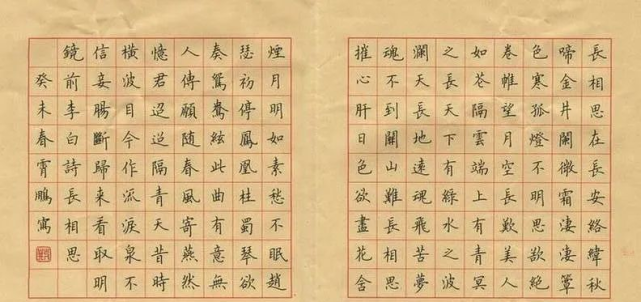 長相思在長安絡緯秋
啼金井闌微霜淒淒簟
色寒孤燈不明思欲絕
卷帷望月空長歎美人
如花隔雲端上有青冥
之長天下有綠水之波
瀾天長地遠魂飛苦夢
魂不到關山難長相思
摧心肝日色欲盡花含
煙月明如素愁不眠趙
瑟初停鳳凰柱蜀琴欲
奏鴛鴦絃此曲有意無
人傳願隨春風寄燕然
憶君迢迢隔青天昔時
橫波目今作流淚泉不
信妾腸斷歸來看取明
鏡前李白詩長相思
癸未春霄鵬寫